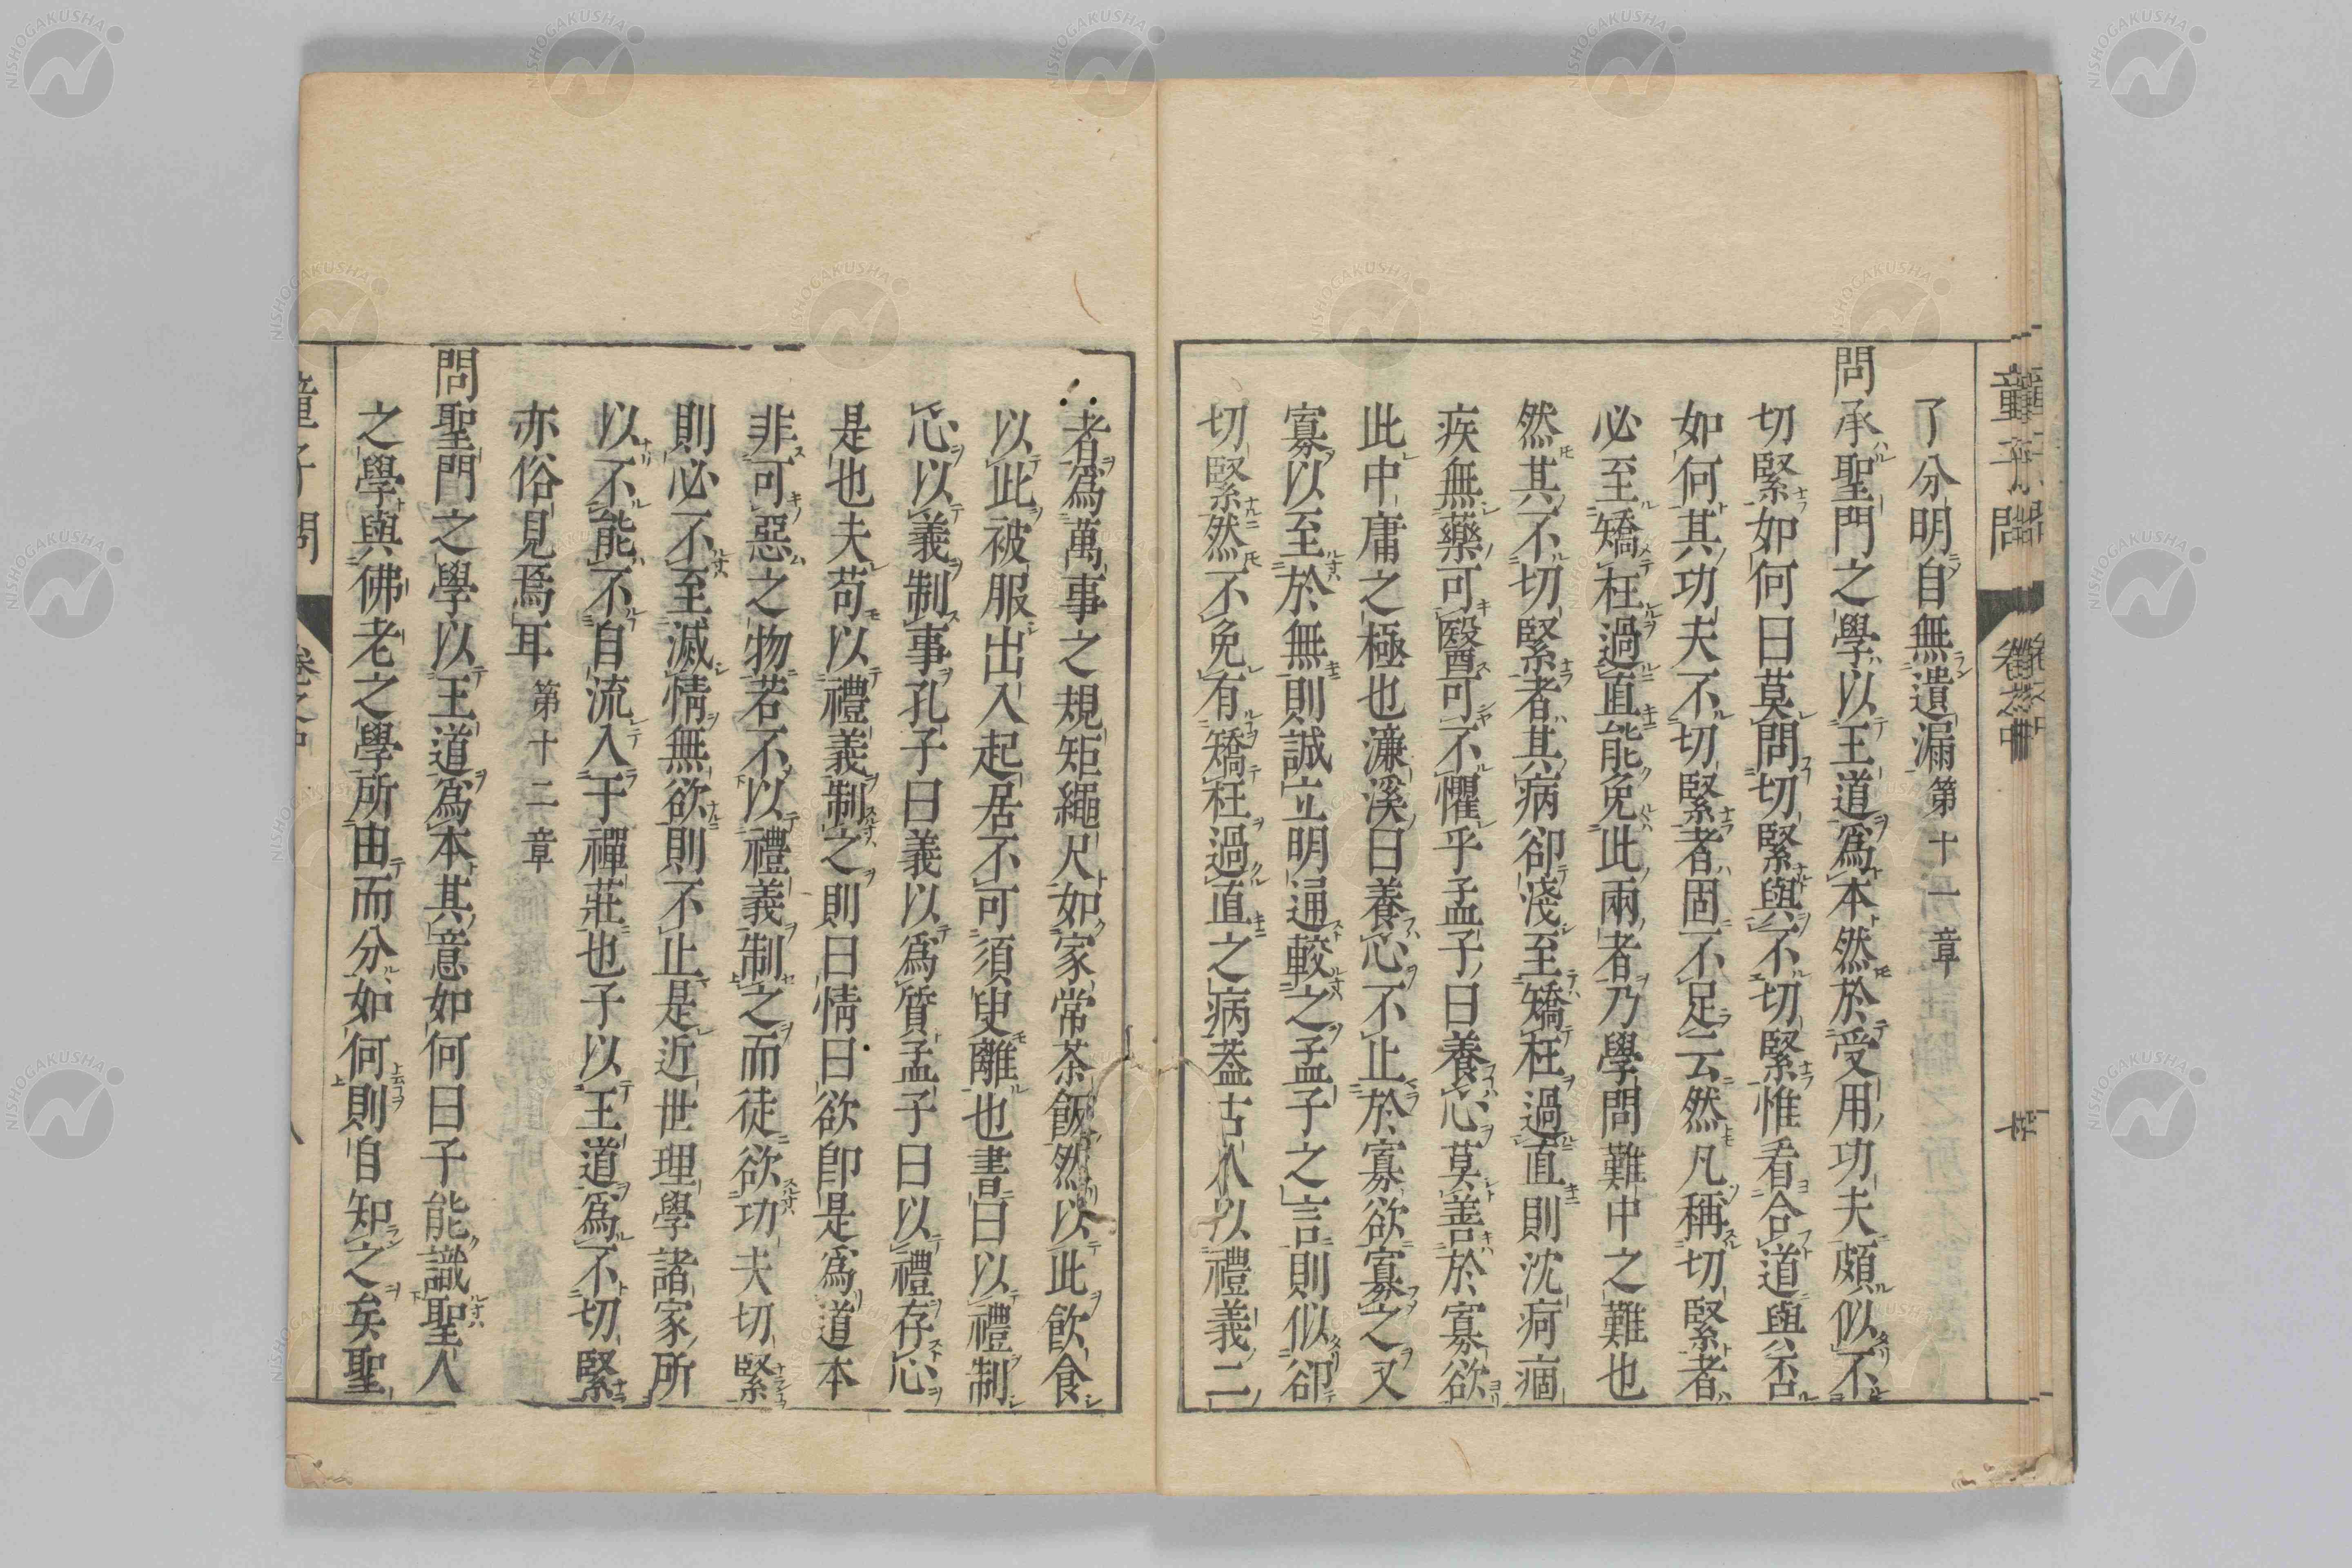 了分明自無遺漏第十一章
問承聖門之學以王道爲本然於受用功夫頗似不
切緊如何曰莫問切緊與不切緊惟看合道與否
如何其功夫不切緊者固不足云然凡稱切緊者
必至矯枉過直能免此兩者乃學問難中之難也
然其不切緊者其病卻淺至矯枉過直則沈痾痼
疾無藥可醫可不懼乎孟子曰養心莫善於寡欲
此中庸之極也濂溪曰養心不止於寡欲寡之又
寡以至於無則誠立明通較之孟子之言則似卻
切緊然不免有矯枉過直之病葢古人以禮義二
者爲萬事之規矩繩尺如家常茶飯然以此飲食
以此被服出入起居不可須臾離也書曰以禮制
心以義制事孔子曰義以爲質孟子曰以禮存心
是也夫苟以禮義制之則曰情曰欲卽是爲道本
非可惡之物若不以禮義制之而徒欲功夫切緊
則必不至滅情無欲則不止是近世理學諸家所
以不能不自流入于禪莊也子以王道爲不切緊
亦俗見焉耳第十二章
問聖門之學以王道爲本其意如何曰子能識聖人
之學與佛老之學所由而分如何則自知之矣聖
童子問
卷之中
NISHOGAKUSHA